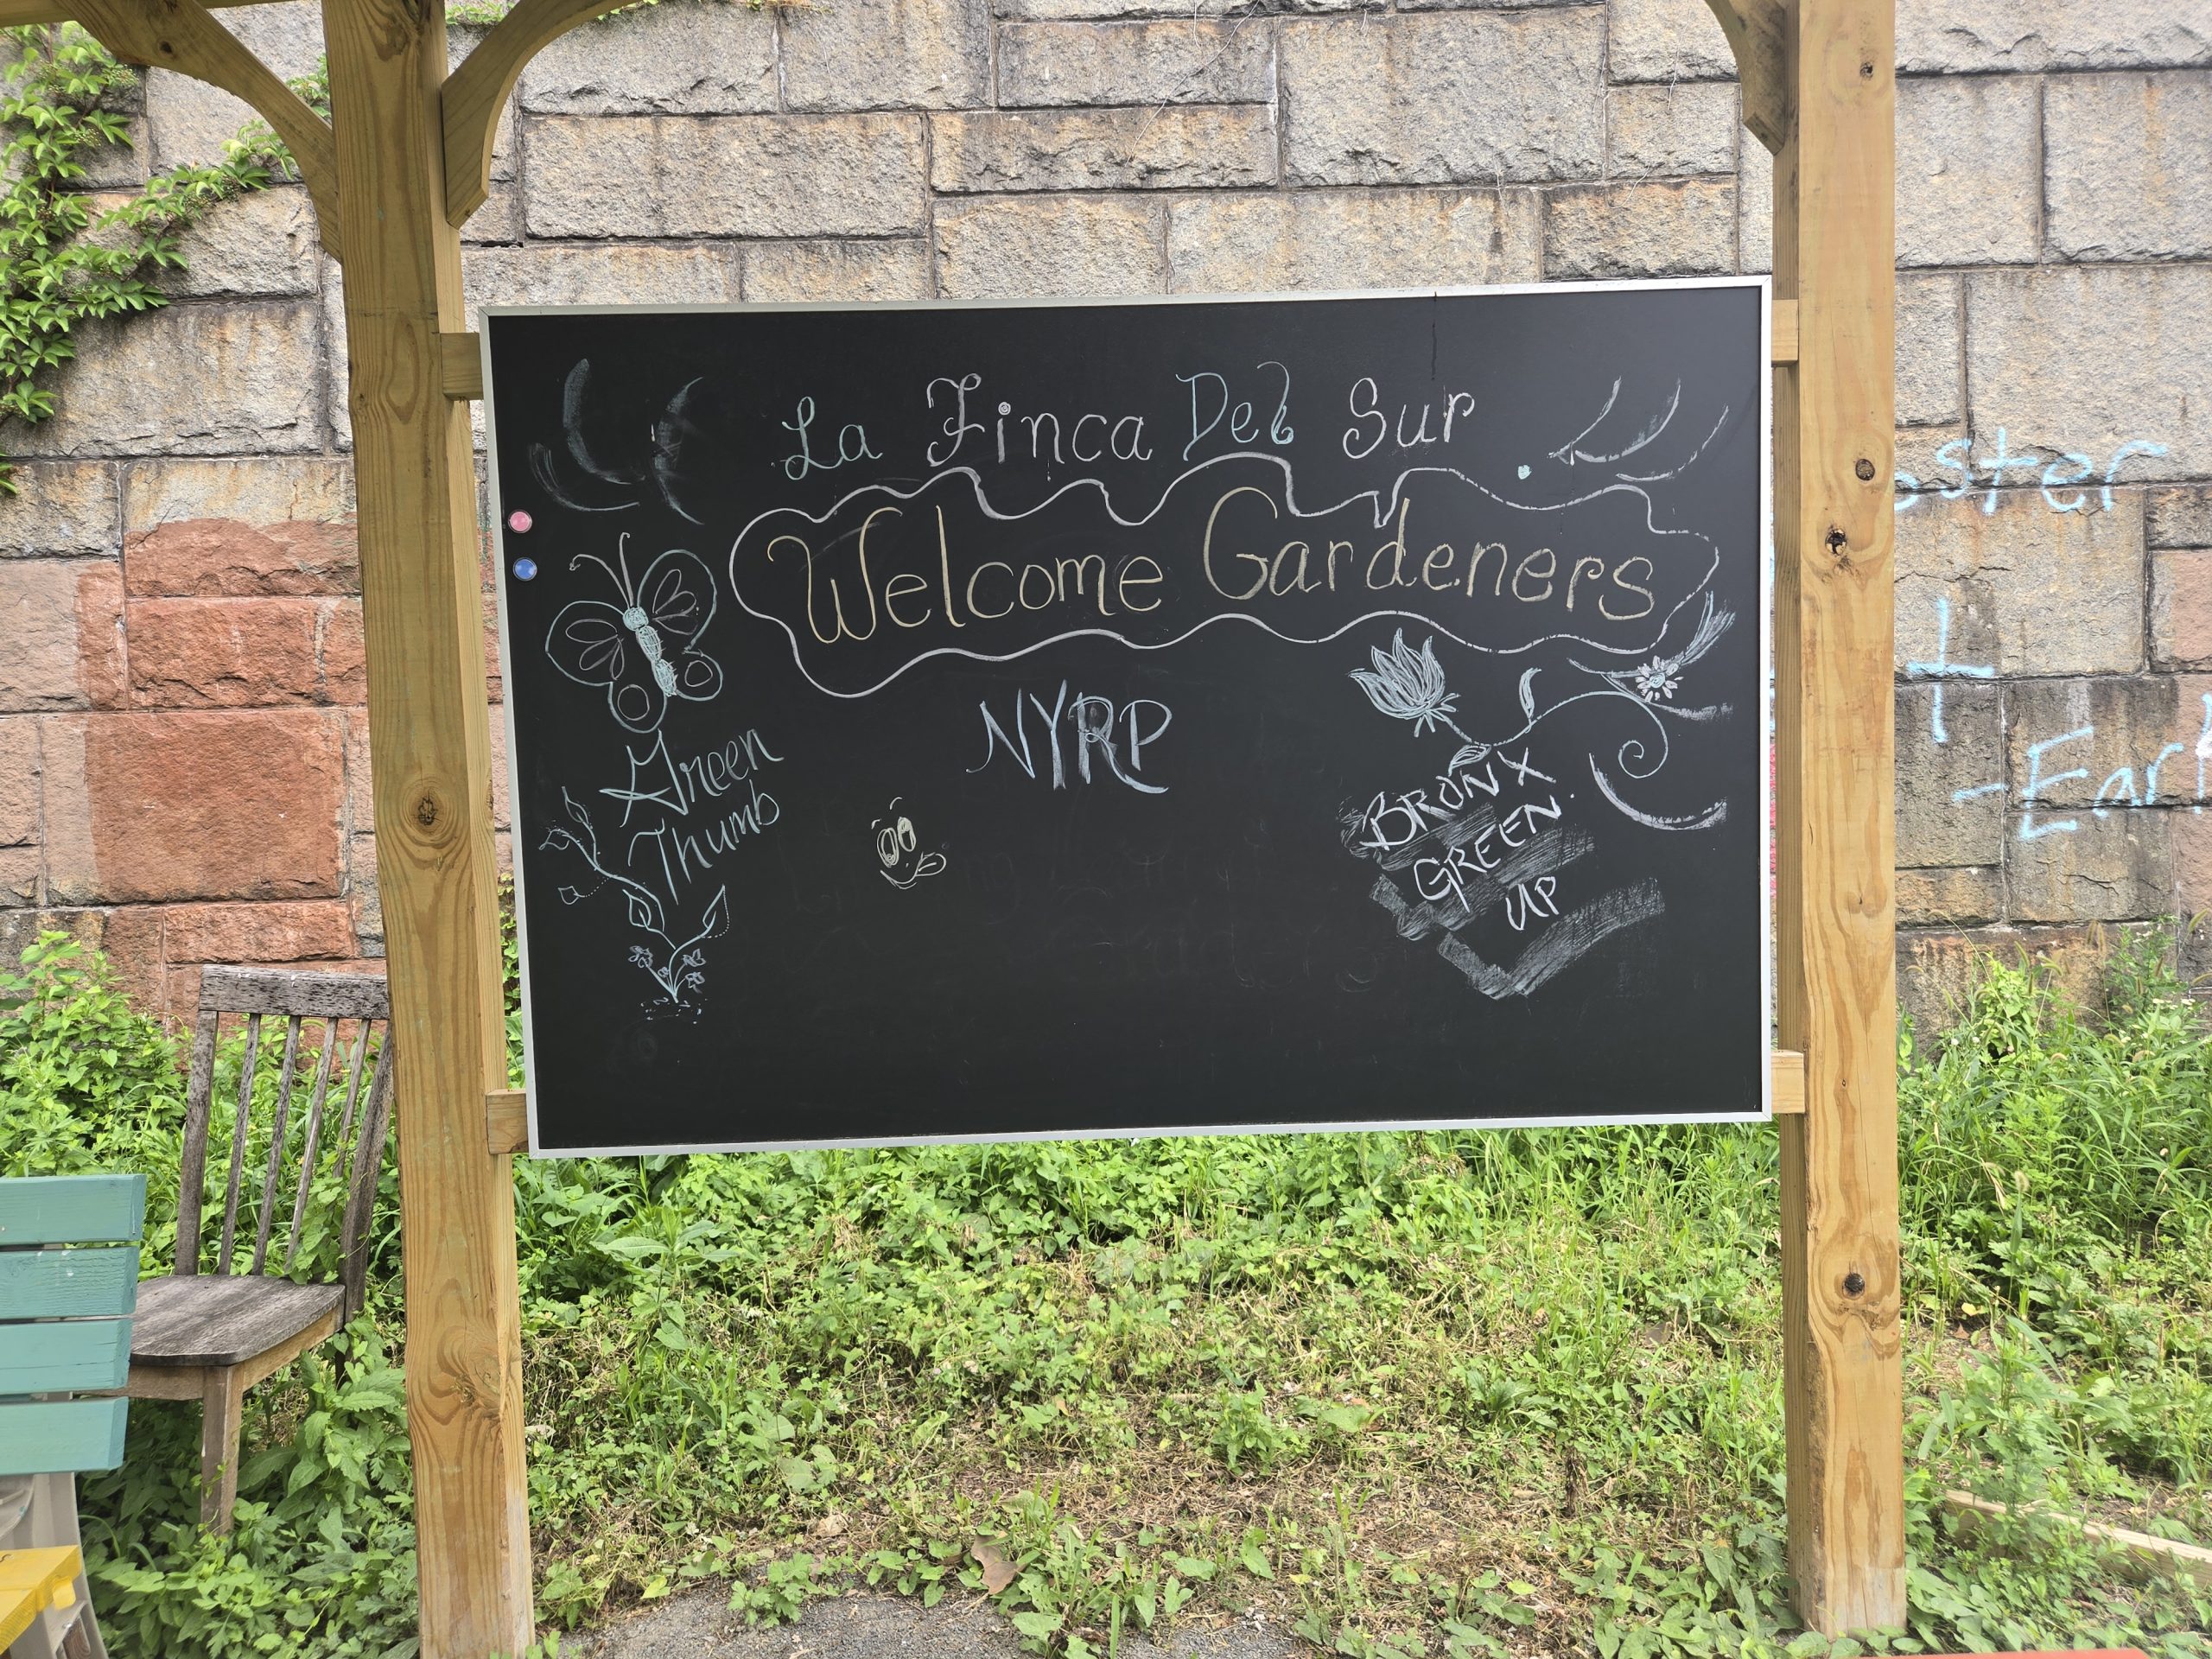 La Finca Del Sur
Welcome Gardeners
NYRP
Green
Thumb
BRONX
GREEN
UP